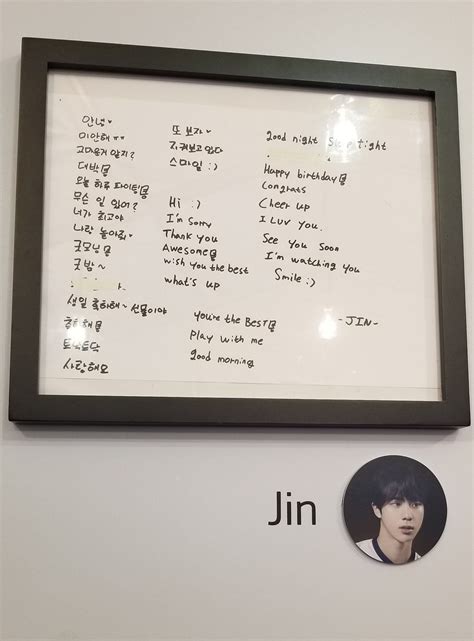 안녕♥
미안해ㅠㅠ
고마운거 알지?
대박
오늘 하루 파이팅
무슨 일 있어?
네가 최고야
나랑 놀아줘♥
굿모닝
굿밤~
생일 축하해~ 선물이야
축하해
토닥토닥
사랑해요
또 보자♥
지켜보고 있다
스마일 :)
Hi :)
I'm sorry
Thank you
Awesome
wish you the best
what's up
you're the BEST
play with me
Good morning
Good night Sleep tight
Happy birthday
Congrats
Cheer up
I LUV you.
See you soon
I'm watching you
Smile :)
-JIN-
Jin